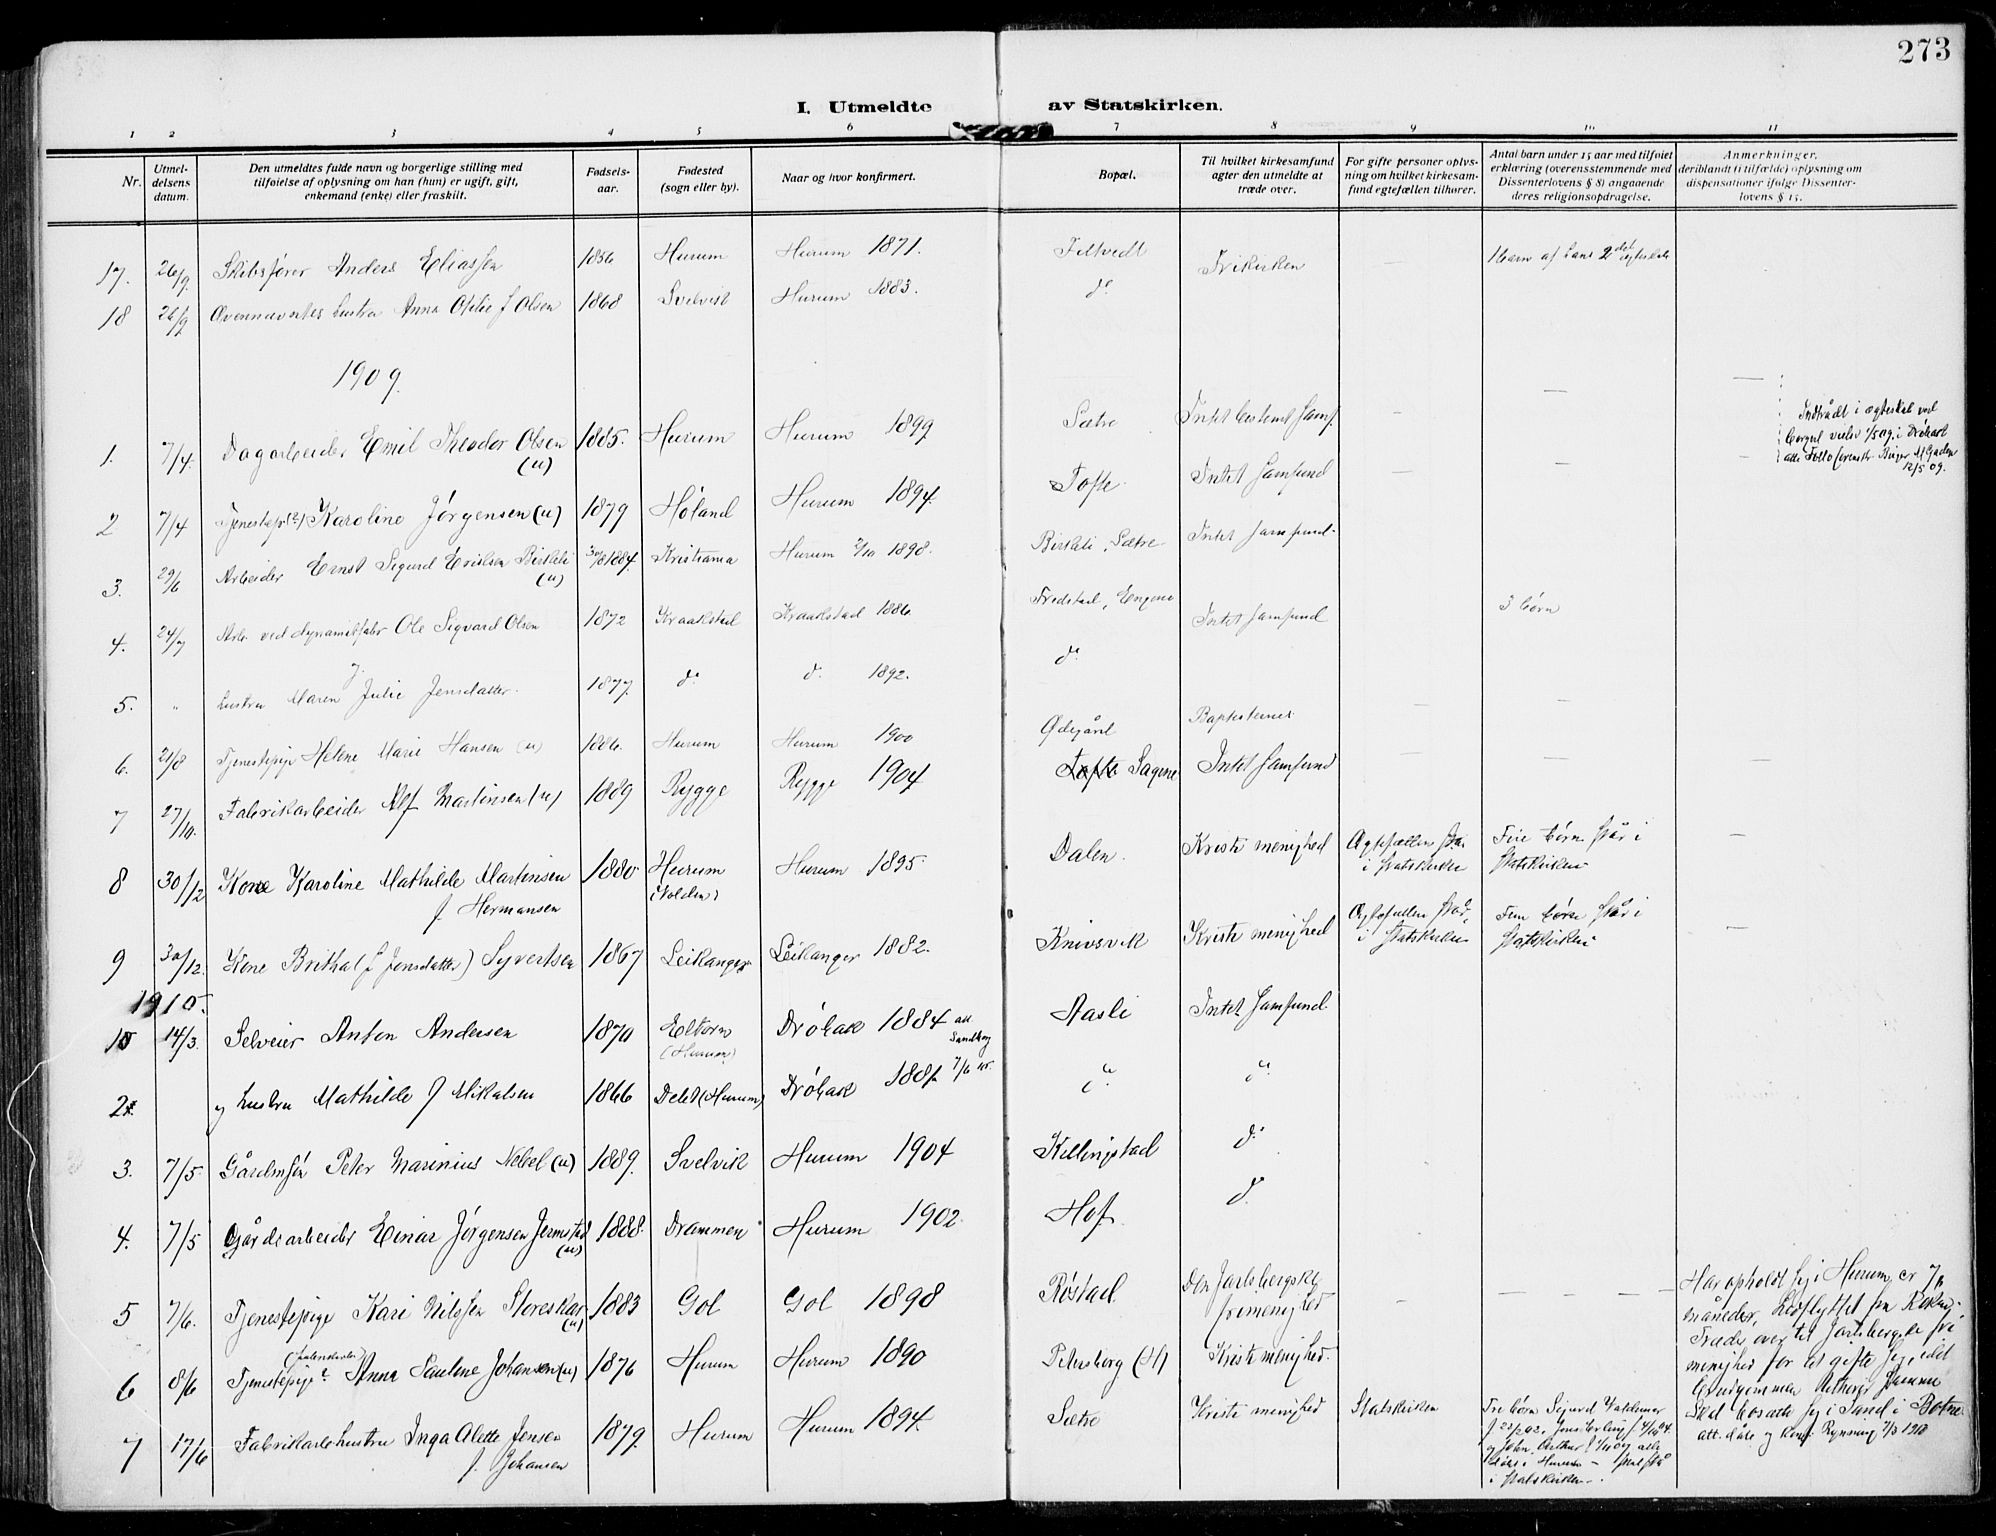 273
I. Utmeldte av Statskirken.
1 2 3 4 5 6 7 8 9 10 11
Nr.
Utmel-
delsens
datum.
Den utmeldtes fulde navn og borgerlige stilling med
tilføielse af oplysning om han (hun) er ugift, gift,
enkemand (enke) eller fraskilt.
Fødsels-
aar.
Fødested
(sogn eller by).
Naar og hvor konfirmert.
Bopæl.
Til hvilket kirkesamfund
agter den utmeldte at
træde over.
For gifte personer oplys-
ning om hvilket kirkesam-
fund egtefællen tilhører.
Antal barn under 15 aar med tilføiet
erklæring (overensstemmende med
Dissenterlovens § 8) angaaende
deres religionsopdragelse.
Anmerkninger,
deriblandt (i tilfælde) oplysning om
dispensationer ifølge Dissenter-
lovens § 15.
17. 26/9. Skibsfører Anders Eliassen 1856 Hurum Hurum 1871. Filtvedt Frikirken — 1 barn af hans 2det egteskab
18 26/9 Ovennævntes hustru Anna Otilie f Olsen 1868 Svelvik Hurum 1883. do
1909.
1. 7/4. Dagarbeider Emil Theodor Olsen (u) 1885. Hurum Hurum 1899 Sætre Intet bestemt Samf. — — —
Indtrådt i ægteskab ved
borgerl vielse 1/5 09. i Drøbak
12/5 09.
2 7/4 Tjenestepi(ge) Karoline Jørgensen (u) 1879 Høland Hurum 1894. Tofte Intet Samfund — — —
3. 29/6 Arbeider Ernst Sigurd Erichsen Birkeli (u) 30/8 1884. Kristiania Hurum 2/10 1898. Birkeli, Sætre Intet Samfund
4. 24/7 Arb. ved dynamitfabr Ole Sigvard Olsen 1872 Kraakstad Kraakstad 1886 Fredstad, Engene Intet Samfund 3 børn
5. " hustru Maren Julie Jensdatter. 1877 do do 1892. do
6. 21/8 Tjenestepige Helene Marie Hansen (u) 1886. Hurum Hurum 1900 Ødegård Baptisternes — —
7 27/10. Fabrikarbeider Alf Martinsen (u) 1889 Rygge Rygge 1904 Tofte Sagene Intet Samfund — — —
8 30/12 Kone Karoline Mathilde Martinsen 1880 Hurum Hurum 1895. Dalen. Kristi menighed Ægtefællen står Fire børn står i —
f. Hermansen (Holden) i Statskirken Statskirken
9 30/12. Kone Brithal (f Jensdatter) Syvertsen 1867 Leikanger Leikanger 1882. Knivsvik Kristi menighed Ægtefællen står Fem børn står i —
i Statskirken Statskirken
1910.
1 14/3. Selveier Anton Andersen 1870 Drøbak 1884 att. Aasli Intet Samfund
(Hurum)
2. og hustru Mathilde f Mikalsen 1866 (Hurum) Drøbak do do
3. 7/5 Gårdmsøn Peter Marinius Nebel (u) 1889. Svelvik Hurum 1904 Killingstad do
4. 7/5 Gårdsarbeider Einar Jørgensen Jernstad (u) 1888. Drammen Hurum 1902. Hof. do
5 7/6. Tjenestepige Kari Nilssen Storeskar (u) 1883 Gol Gol 1898 Røstad. Den Jarlsbergske — — — — —
frimenighed
6 8/6 Tjenestepige Anna Pauline Johansen (u) 1876 Hurum Hurum 1890 Petersborg (H) Kristi menighed.
7 17/6 Fabrikarb hustru Inga Alette Jensen 1879. Hurum Hurum 1894. Sætre Kristi menighed Statskirken Tre børn Sigurd Valdemar
f. Johansen
i Statskirken.
Har opholdt sig i Hurum, er
måneder, hidflyttet fra Røken.
Træder over til Jarlsbergske fri
menighed for at gifte sig, idet
brudgommen
Skal bosætte sig i Sand i Botne